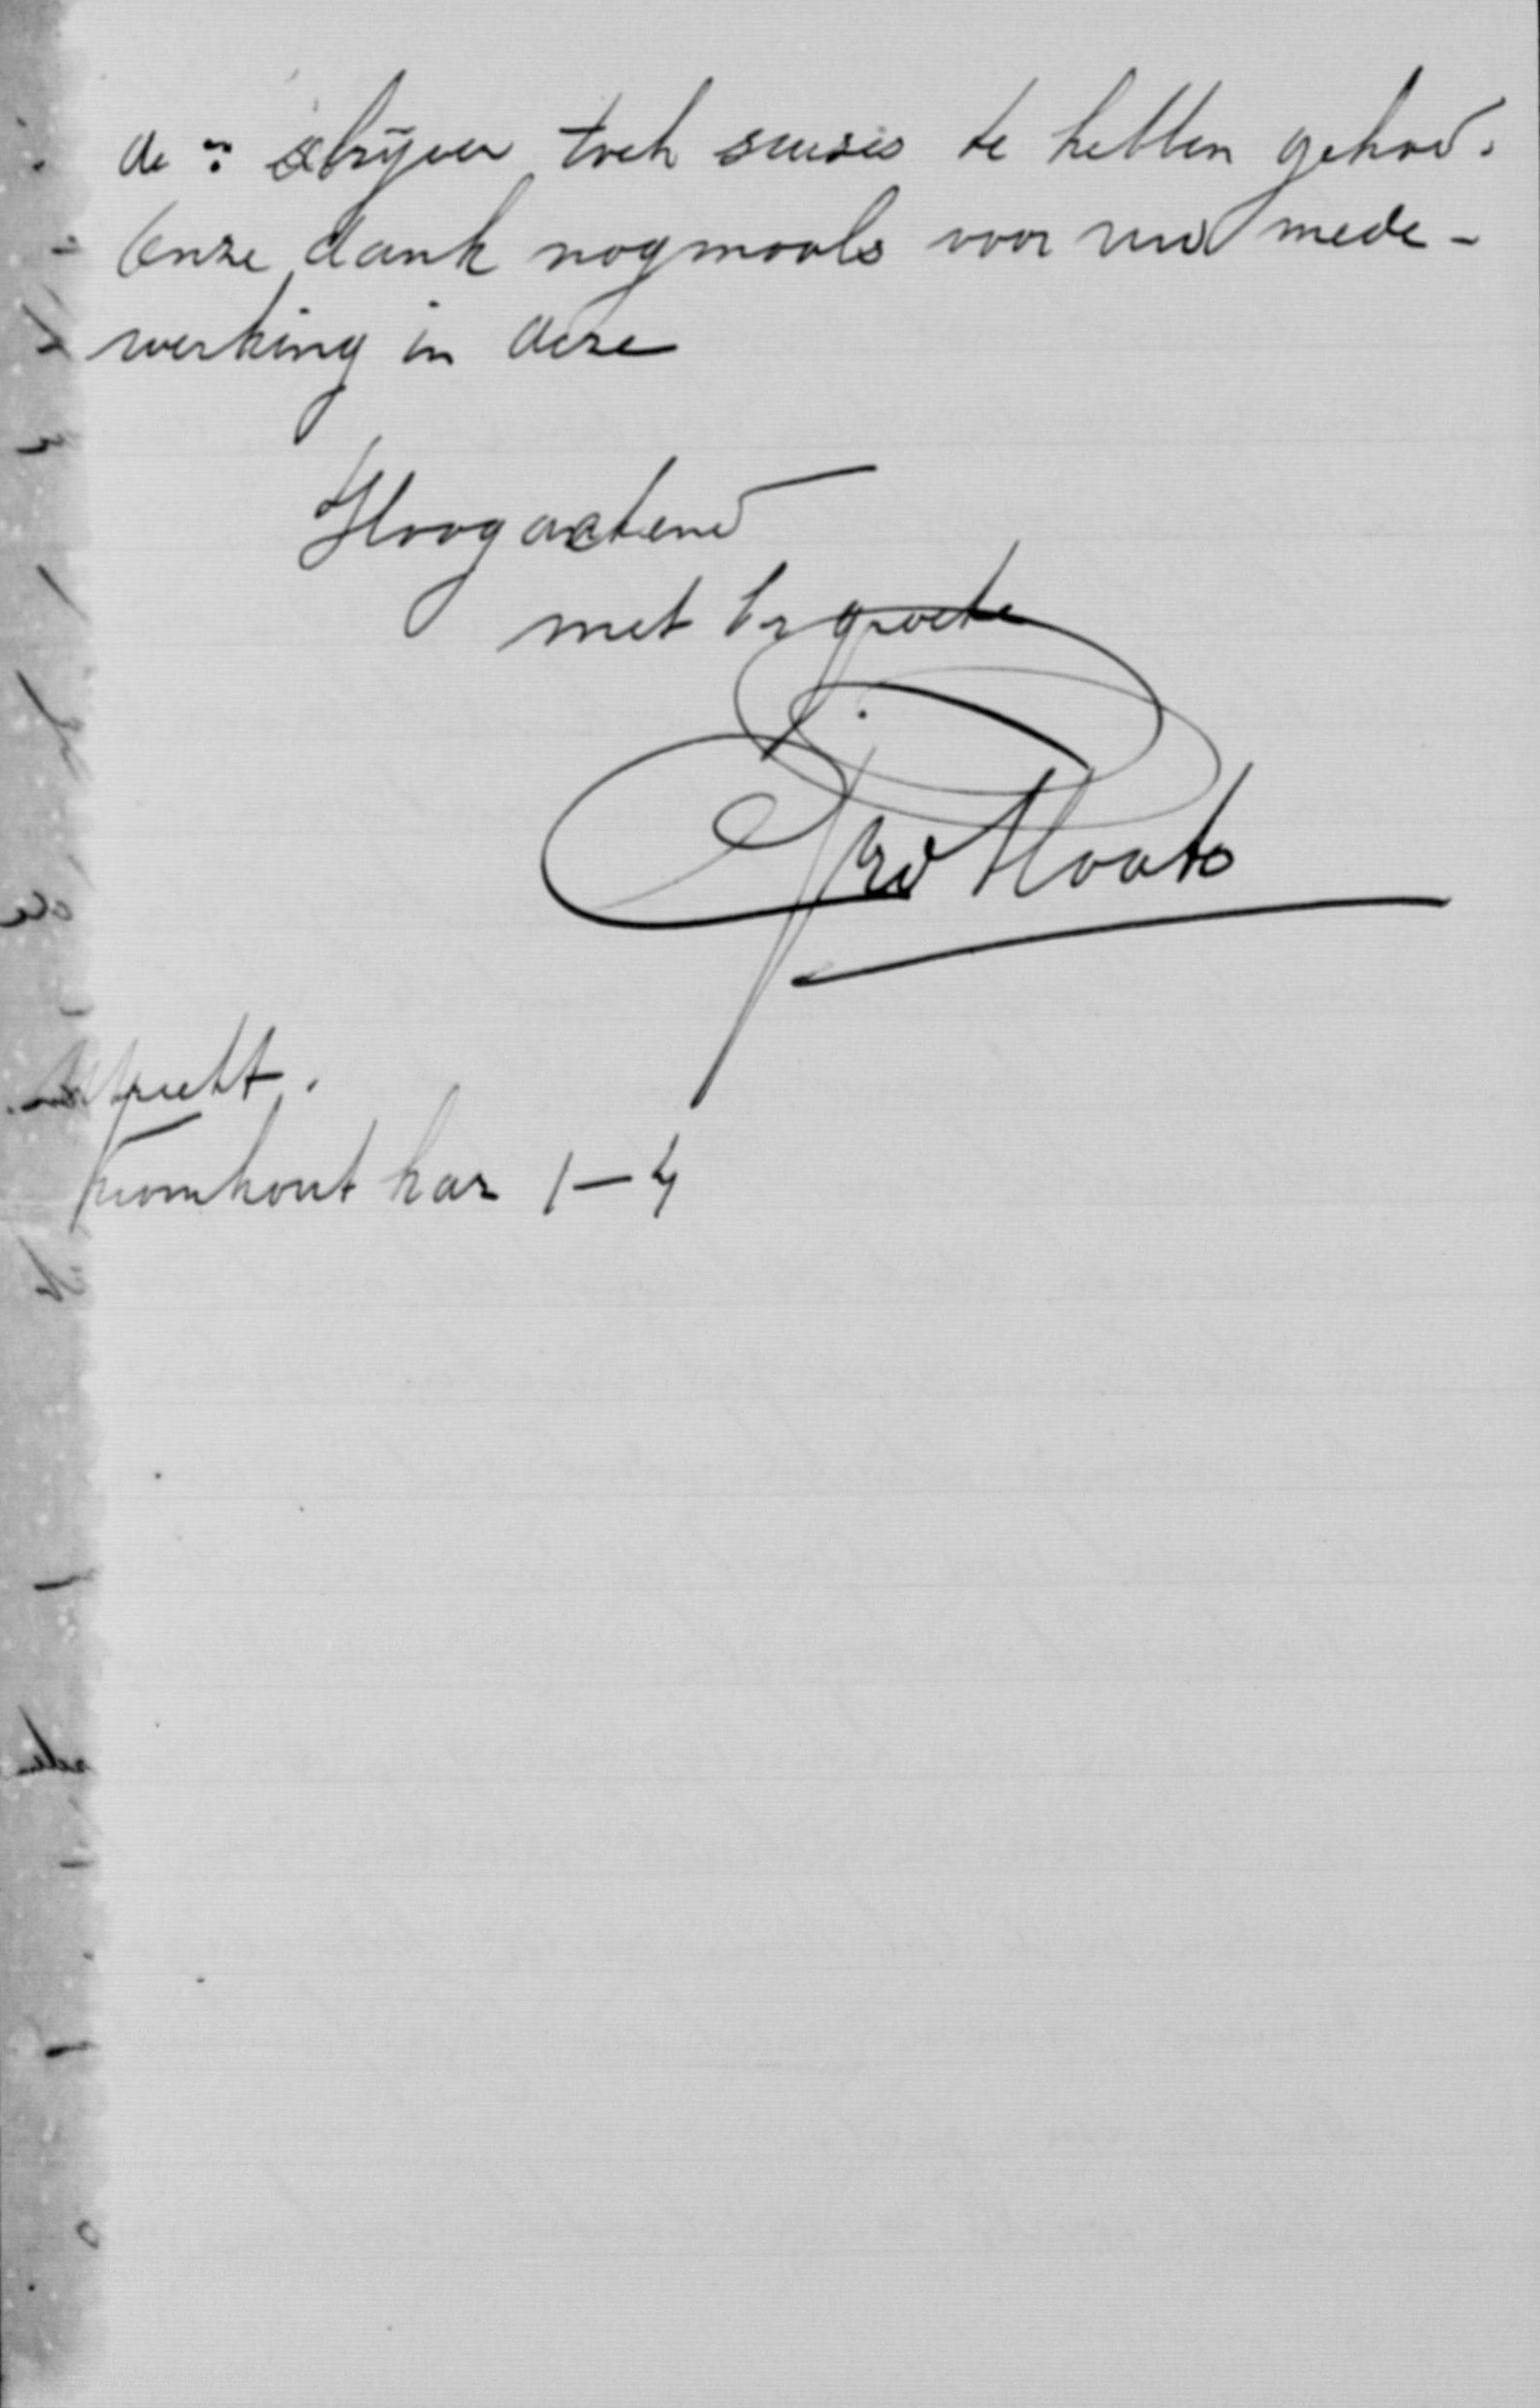 de : schrijver toch suuses te hebben gehad.
Onze dank nogmaals voor uw mede-
werking in deze
Hoogachtend
met groete
Utrecht.
Kromhout kaz 1-4